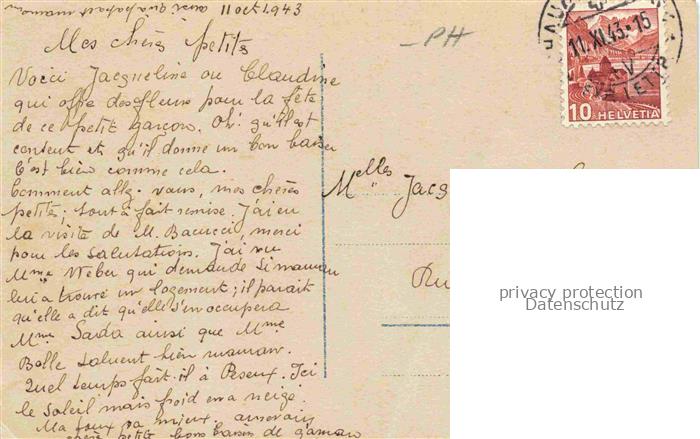 aussi qu'à papa et maman
11 oct. 1943
Mes chères petites
Voici Jacqueline ou Claudine
qui offre des fleurs pour la fête
de ce petit garçon. Oh! qu'il est
content et qu'il donne un bon baiser
C'est bien comme cela.
Comment allez-vous, mes chères
petites; tout à fait remise. J'ai eu
la visite de M. Bacucci, merci
pour les salutations. J'ai vu
Mme Weber qui demande si maman
lui a trouvé un logement; il parait
qu'elle a dit qu'elle s'en occupera
Mme Sarda ainsi que Mme
Bolle saluent bien maman.
Quel temps fait-il à Peseux. Ici
le soleil mais froid en a neigé
Ma toux va mieux,
chère petite bons baisers de
PH
11.XI.43-16
10 HELVETIA
Melles Jacq
Ru
privacy protection
Datenschutz